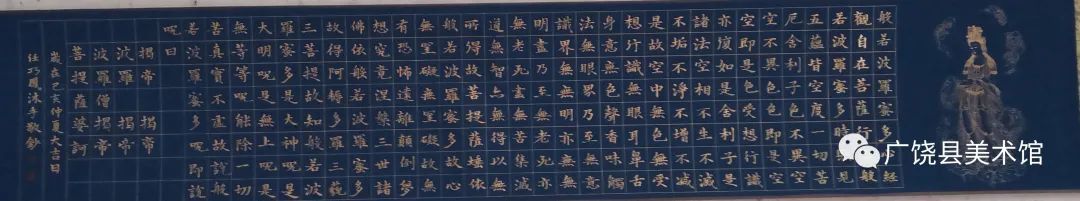 般若波羅蜜多心經
觀自在菩薩行深般
若波羅蜜多時照見
五蘊皆空度一切苦
厄舍利子色不異空
空不異色色即是空
空即是色受想行識
亦復如是舍利子是
諸法空相不生不滅
不垢不淨不增不減
是故空中無色無受
想行識無眼耳鼻舌
身意無色聲香味觸
法無眼界乃至無意
識界無無明亦無無
明盡乃至無老死亦
無老死盡無苦集滅
道無智亦無得以無
所得故菩提薩埵依
般若波羅蜜多故心
無罣礙無罣礙故無
有恐怖遠離顛倒夢
想究竟涅槃三世諸
佛依般若波羅蜜多
故得阿耨多羅三藐
三菩提故知般若波
羅蜜多是大神呪是
大明呪是無上呪是
無等等呪能除一切
苦真實不虛故說般
若波羅蜜多呪即說
呪曰
揭帝揭帝
波羅揭帝
波羅僧揭帝
菩提薩婆訶
歲在己亥仲夏大吉日
任巧鳳沐手敬鈔
广饶县美术馆